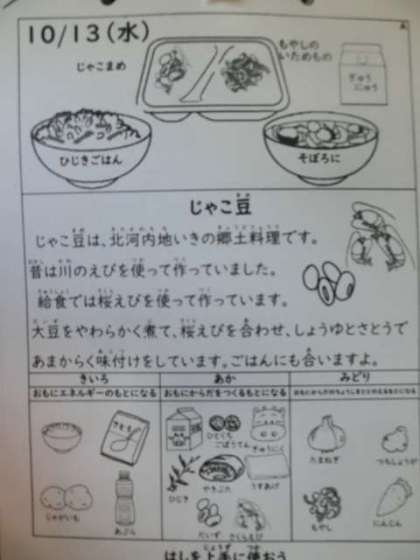 10/13(水)
じゃこまめ
もやしの
いためもの
ぎゅう
にゅう
ひじきごはん
そぼろに
じゃこ豆
じゃこ豆は、北河内地いきの郷土料理です。
昔は川のえびを使って作っていました。
給食では桜えびを使って作っています。
大豆をやわらかく煮て、桜えびを合わせ、しょうゆとさとうで
あまからく味付けをしています。ごはんにも合いますよ。
きいろ
あか
みどり
おもにエネルギーのもとになる
おもにからだをつくるもとになる
おもにからだのちょうしをととのえるもとになる
ひとくち
ごぼうてん
ぎゅうにく
ひじき
やきぶた
うすあげ
だいず
さくらえび
じゃがいも
あぶら
たまねぎ
つちしょうが
もやし
にんじん
はしを上手に使おう